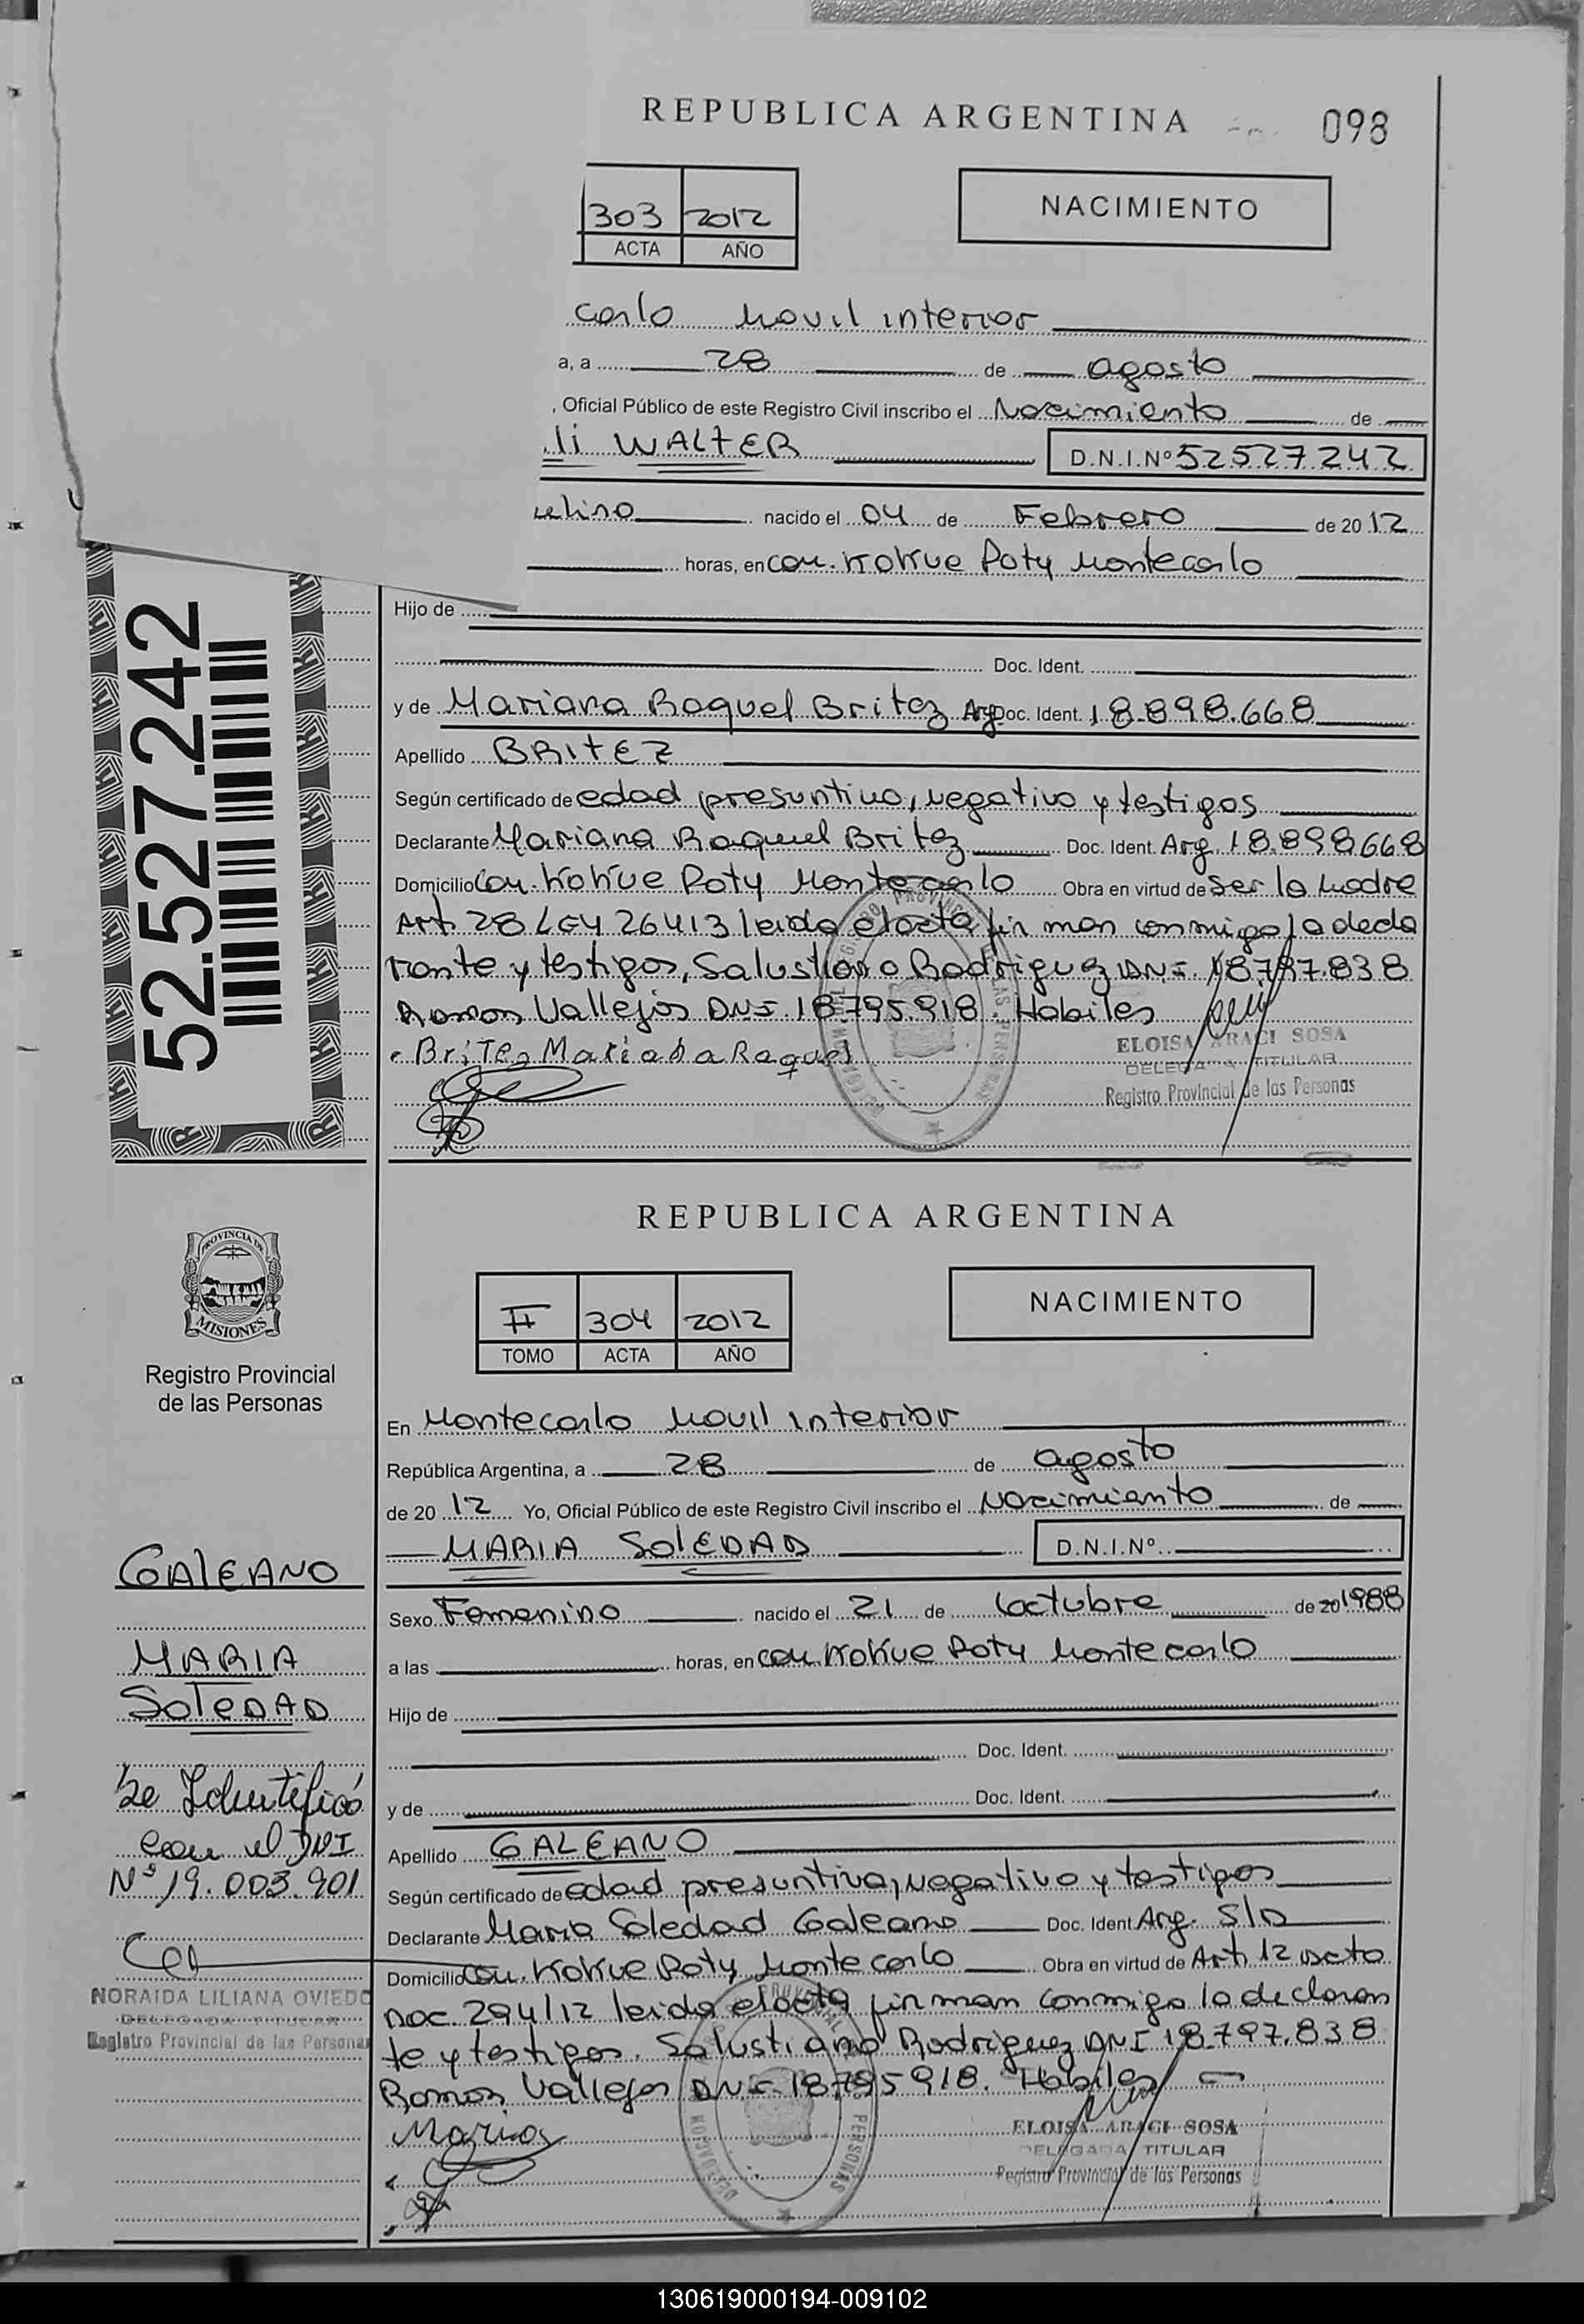 REPUBLICA ARGENTINA 098
303 2012
ACTA AÑO
NACIMIENTO
carlo Movil interior
a, a 28 de agosto
, Oficial Público de este Registro Civil inscribo el Nacimiento de
li WALTER D.N.I.Nº 52527242
ulino nacido el 04 de Febrero de 2012
horas, en com. Kokue Poty Montecarlo
Hijo de
Doc. Ident.
y de Mariana Raquel Britez Arg Doc. Ident. 18.898.668
Apellido BRITEZ
Según certificado de edad presuntivo, negativo y testigos
Declarante Mariana Raquel Britez Doc. Ident. Arg. 18.898668
Domicilio Com. Kokue Poty Montecarlo Obra en virtud de ser la Madre
Art. 28 LEY 26413 leida el acta firman conmigo la decla
rante y testigos, Salustiano Rodriguez DNI. 18.797.838
Ramon Vallejos DNI. 18.795.918. Habiles
Britez Mariana Raquel
ELOISA ARACI SOSA
DELEGADA TITULAR
Registro Provincial de las Personas
52.527.242
REPUBLICA ARGENTINA
PROVINCIA DE
MISIONES
Registro Provincial
de las Personas
II 304 2012
TOMO ACTA AÑO
NACIMIENTO
En Montecarlo Movil interior
República Argentina, a 28 de agosto
de 2012 Yo, Oficial Público de este Registro Civil inscribo el Nacimiento de
MARIA SOLEDAD D.N.I.Nº
Sexo Femenino nacido el 21 de Octubre de 20 1988
a las horas, en com. Kokue Poty Montecarlo
Hijo de
Doc. Ident.
y de Doc. Ident.
Apellido GALEANO
Según certificado de edad presuntiva, negativo y testigos
Declarante Maria Soledad Galeano Doc. Ident Arg. S/D
Domicilio Com. Kokue Poty Montecarlo Obra en virtud de Art. 12 Dcto
Noc. 294/12 leida el acta firman conmigo la declaran
te y testigos. Salustiano Rodriguez DNI 18.797.838
Ramon Vallejos DNI. 18.795918. Habiles
Maria
ELOISA ARACI SOSA
DELEGADA TITULAR
Registro Provincial de las Personas
GALEANO
MARIA
SOLEDAD
Se Identificó
con el DNI
Nº 19.003.901
NORAIDA LILIANA OVIEDO
DELEGADA TITULAR
Registro Provincial de las Personas
130619000194-009102